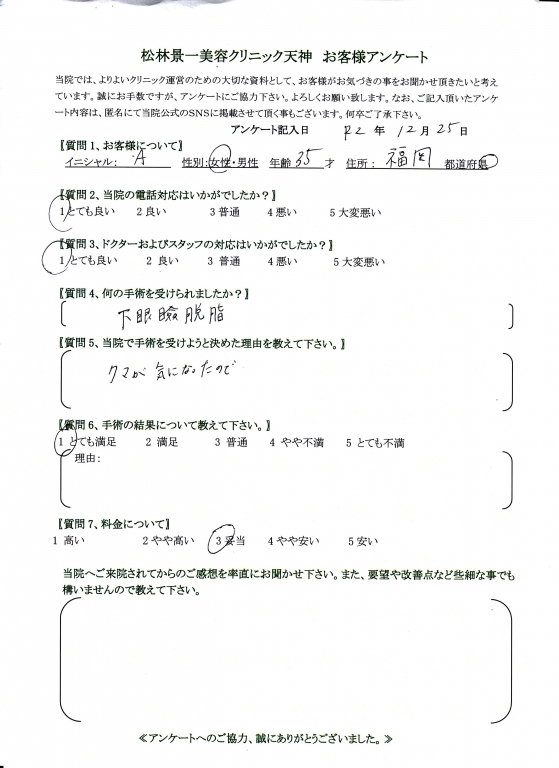 松林景一美容クリニック天神 お客様アンケート
当院では、よりよいクリニック運営のための大切な資料として、お客様がお気づきの事をお聞かせ頂きたいと考え
ています。誠にお手数ですが、アンケートにご協力下さい。よろしくお願い致します。なお、ご記入頂いたアンケ
ート内容は、匿名にて当院公式のSNSに掲載させて頂く事もございます。何卒ご了承下さい。
アンケート記入日 R2 年 12 月 25 日
【質問1、お客様について】
イニシャル: A 性別:女性・男性 年齢 35 才 住所: 福岡 都道府県
【質問2、当院の電話対応はいかがでしたか?】
1とても良い 2良い 3普通 4悪い 5大変悪い
【質問3、ドクターおよびスタッフの対応はいかがでしたか?】
1 とても良い 2 良い 3 普通 4悪い 5大変悪い
【質問4、何の手術を受けられましたか?】
下眼瞼脱脂
【質問5、当院で手術を受けようと決めた理由を教えて下さい。】
クマが気になったので
【質問6、手術の結果について教えて下さい。】
1 とても満足 2 満足 3 普通 4 やや不満 5 とても不満
理由:
【質問7、料金について】
1 高い 2やや高い 3妥当 4やや安い 5安い
当院へご来院されてからのご感想を率直にお聞かせ下さい。また、要望や改善点など些細な事でも
構いませんので教えて下さい。
≪アンケートへのご協力、誠にありがとうございました。≫